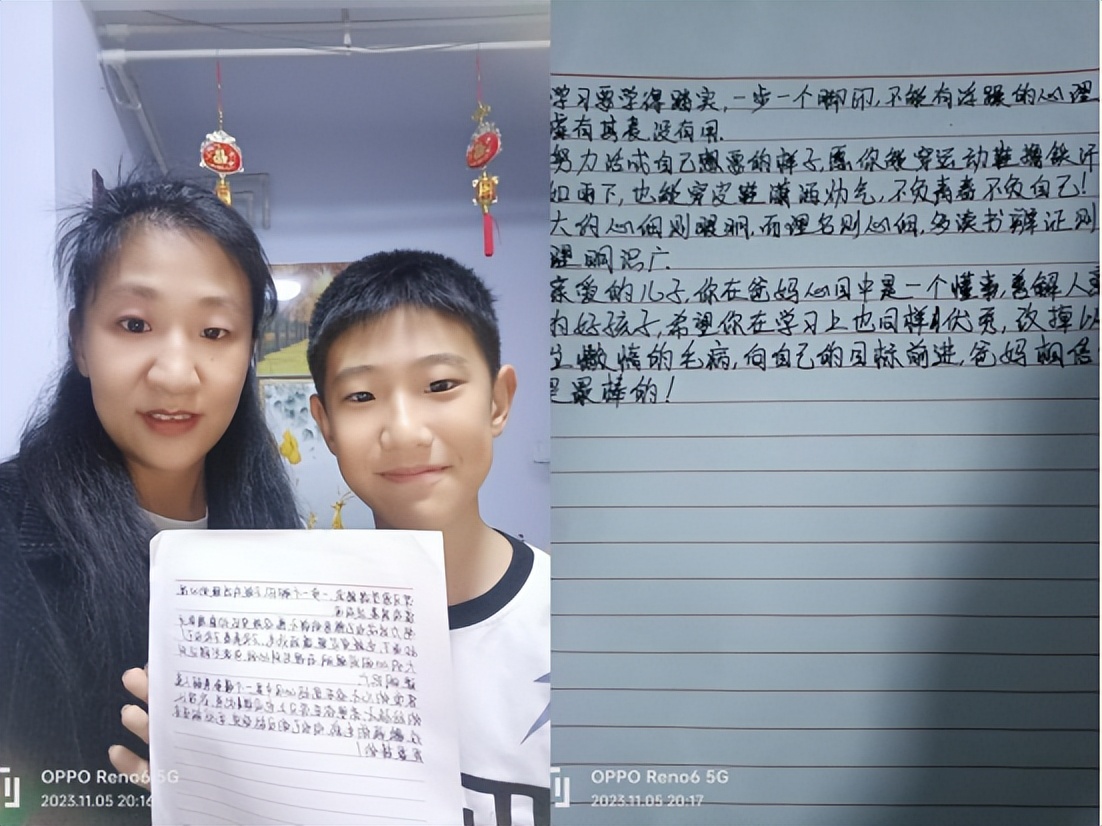 OPPO Reno6 5G
2023.11.05 20:16
学习要学得踏实,一步一个脚印,不能有浮躁的心理
虚有其表没有用.
努力活成自己想要的样子,愿你能穿运动鞋撸铁汗
如雨下,也能穿皮鞋潇洒帅气,不负青春不负自己!
大约心细则眼明,而理名则心细,多读书辩证则
理明识广.
亲爱的儿子,你在爸妈心目中是一个懂事,善解人意
的好孩子,希望你在学习上也同样优秀,改掉以
懒惰的毛病,向自己的目标前进,爸妈相信
是最棒的!
OPPO Reno6 5G
2023.11.05 20:17